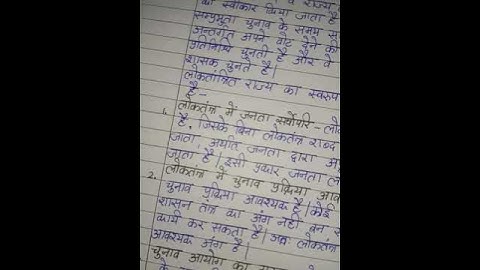 को स्वीकार किया जाता है
सम्प्रभुता चुनाव के समय स
अन्तर्गत अपने वोट देने की
प्रतिनिधि चुनती है और वे
शासक चुनते हैं।
लोकतांत्रिक राज्य का स्वरूप
है -
1. लोकतंत्र में जनता सर्वोपरि - लोक
है, जिसके बिना लोकतंत्र शब्द
जाता, अर्थात जनता द्वारा अ
जाता है। इसी प्रकार जनता लो
2. लोकतंत्र में चुनाव प्रक्रिया आव
चुनाव प्रक्रिया आवश्यक है। कोई
शासन तंत्र का अंग नहीं बन स
कार्य कर सकता है। अतः लोकतंत्र
आवश्यक अंग है।
चुनाव आयोग का